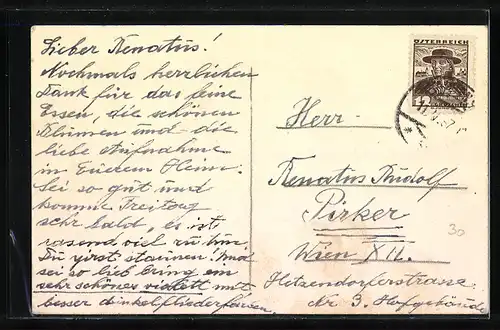 Lieber Renatus!
Nochmals herrlichen
Dank für das feine
Essen, die schönen
Blumen und die
liebe Aufnahme
in Eurem Heim.
Sei so gut und
komme Freitag
sehr bald, es ist
rasend viel zu tun.
Du wirst staunen. Und
sei so lieb bring ein
sehr schönes violett mit
besser dunkelfliederfarben.
ÖSTERREICH
12
Herr
Renatus Rudolf
Pirker
Wien XII.
Hetzendorferstrasse
Nr. 3. Hofgebäude
30